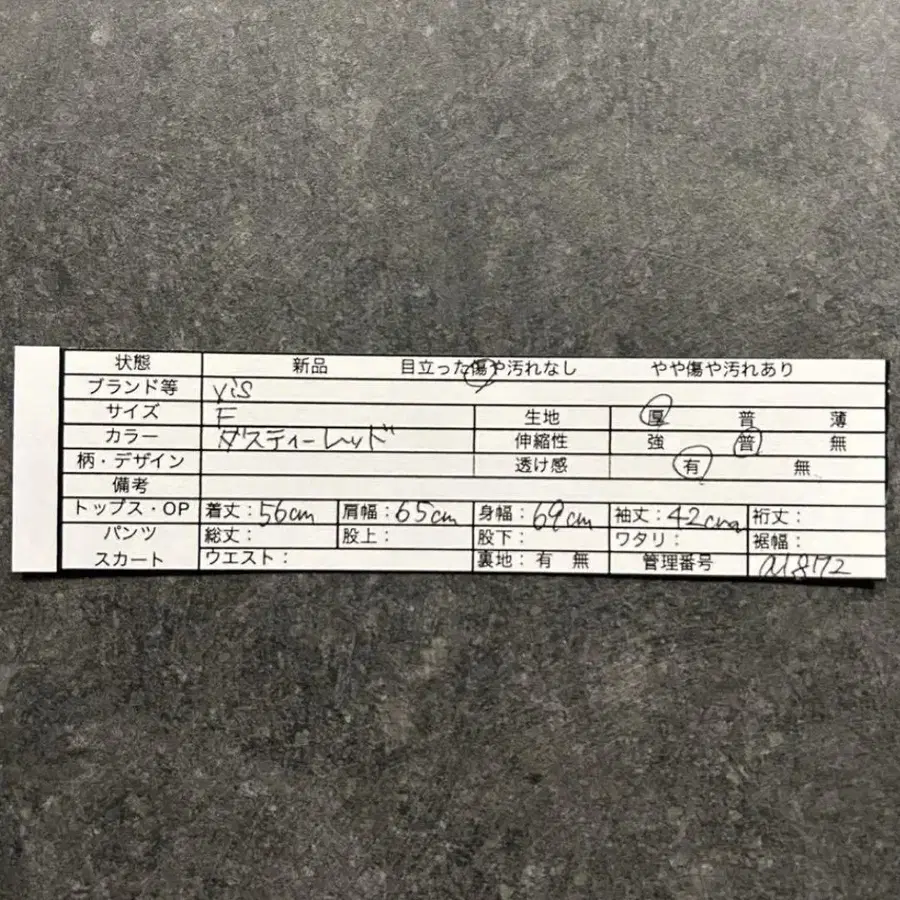 状態 新品 目立った傷や汚れなし やや傷や汚れあり
ブランド等 vis
サイズ F 生地 厚 普 薄
カラー ダスティーレッド 伸縮性 強 普 無
柄・デザイン 透け感 有 無
備考
トップス・OP 着丈：56cm 肩幅：65cm 身幅：69cm 袖丈：42cm 裄丈：
パンツ 総丈： 股上： 股下： ワタリ： 裾幅：
スカート ウエスト： 裏地：有 無 管理番号 a18172